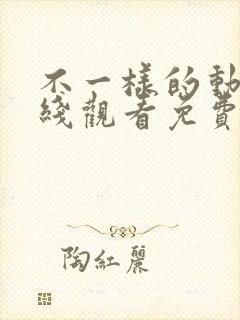 不一樣的動
綫觀看免費
陶紅麗